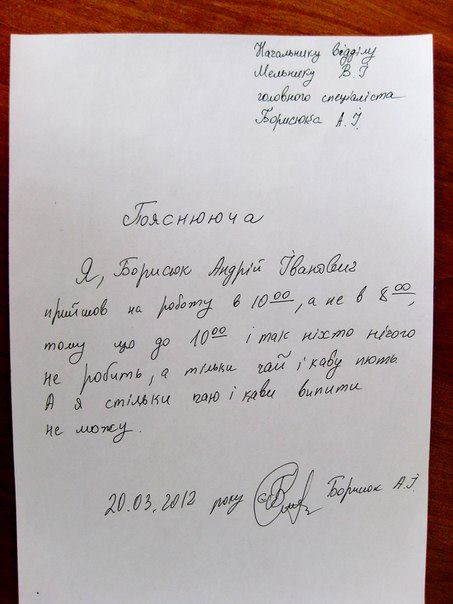 Начальнику відділу
Мельнику В.І
головного спеціаліста
Борисюка А.І.
Пояснююча
Я, Борисюк Андрій Іванович
прийшов на роботу в 10⁰⁰, а не в 8⁰⁰,
тому що до 10⁰⁰ і так ніхто нічого
не робить, а тільки чай і каву пють
А я стільки чаю і кави випити
не можу.
20.03.2012 року Борисюк А.І.